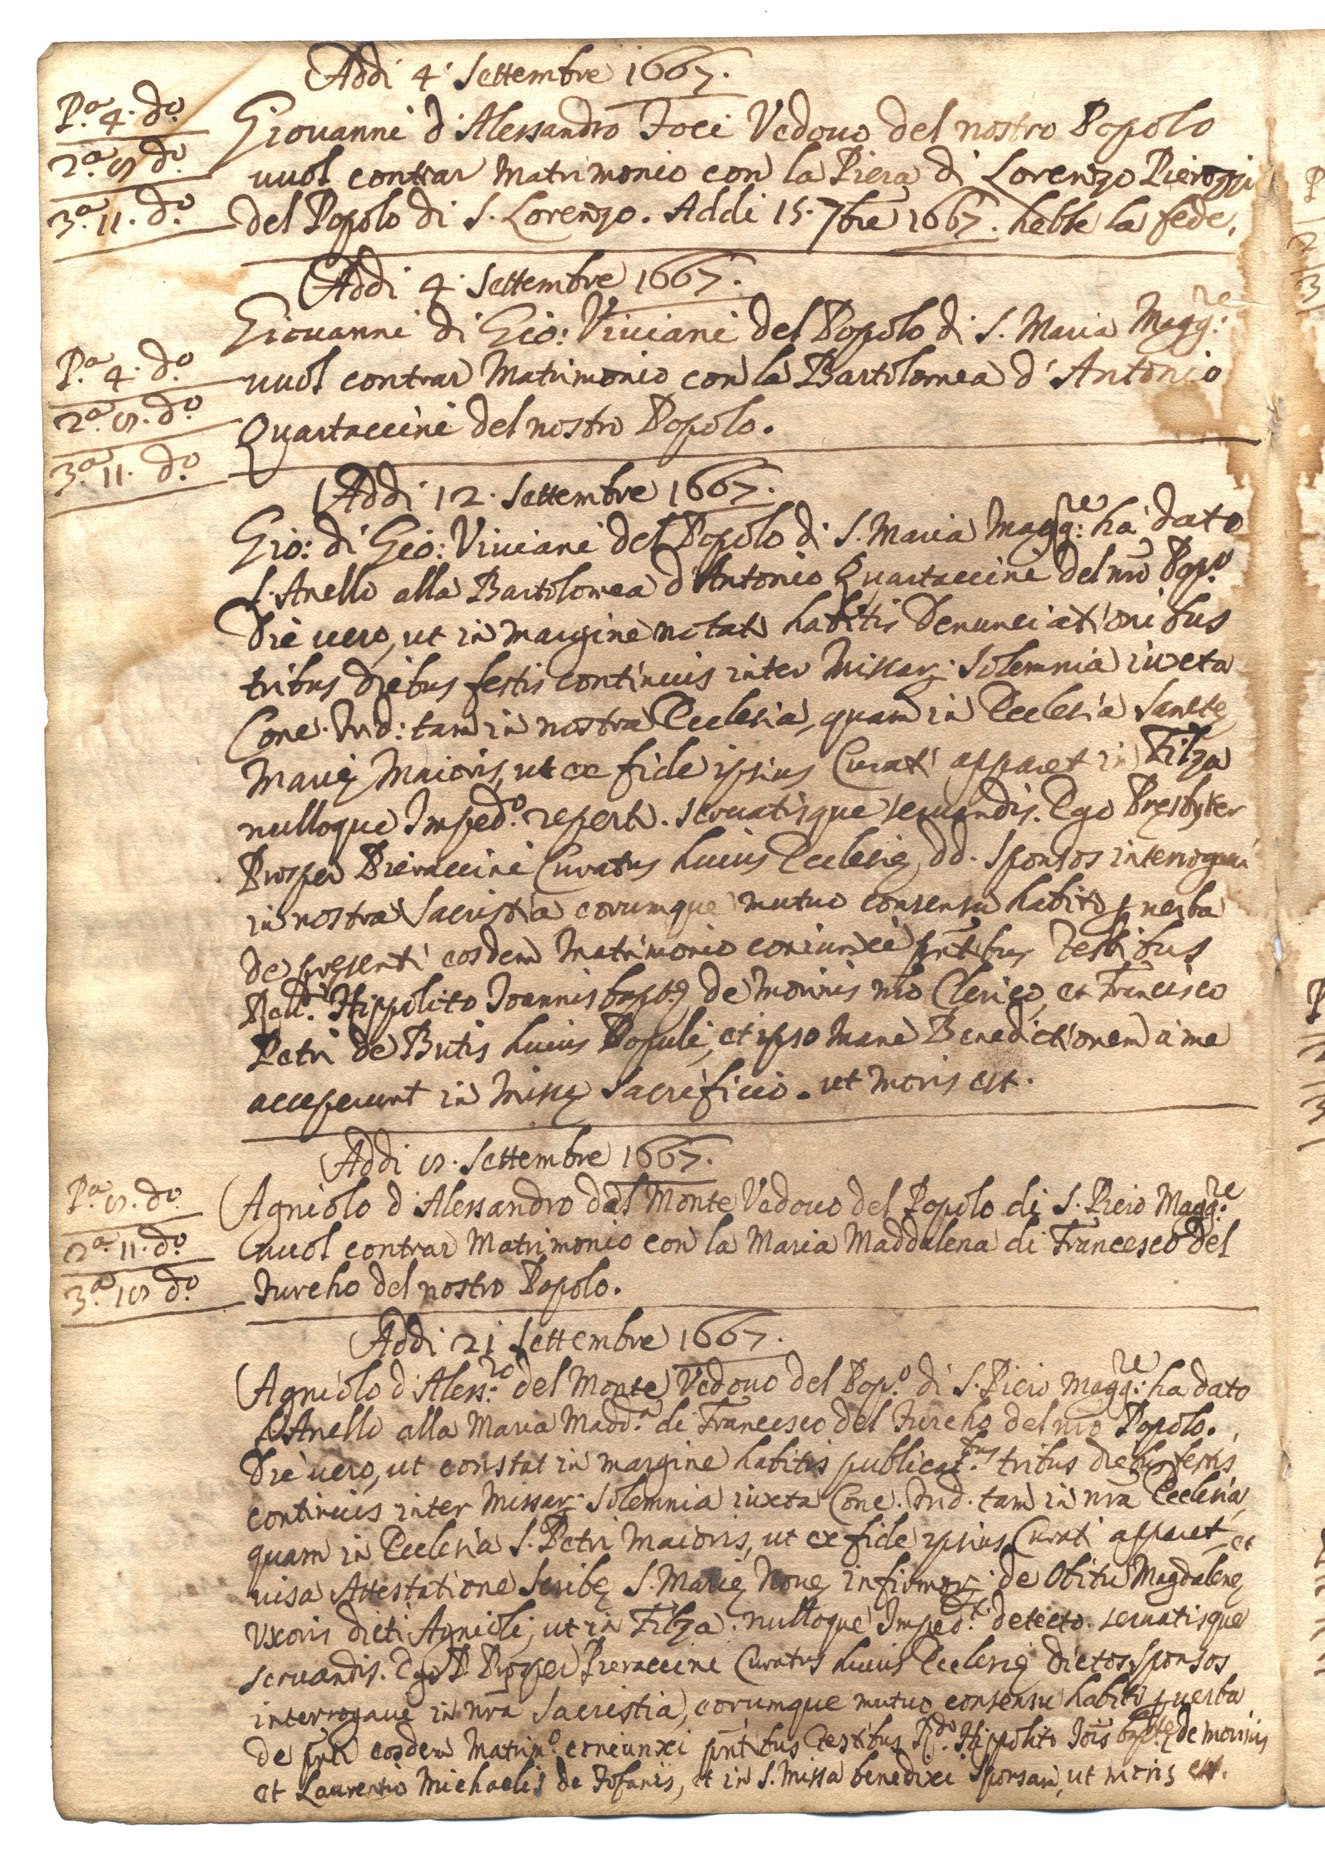 Addi 4 Settembre 1667.
P.a 4. do
2.a 8 do
3.a 11. do
Giovanni d'Alessandro Foci Vedovo del nostro Popolo
vuol contrar Matrimonio con la Piera di Lorenzo Pierozzi
del Popolo di S. Lorenzo. Addi 15. 7bre 1667. hebbe la fede.
Addi 4 Settembre 1667.
P.a 4. do
2.a 8. do
3.a 11. do
Giovanni di Gio: Viviani del Popolo di S. Maria Magg:re
vuol contrar Matrimonio con la Bartolomea d'Antonio
Quartaccini del nostro Popolo.
Addi 12. Settembre 1667.
Gio: di Gio: Viviani del Popolo di S. Maria Magg:re ha dato
l'Anello alla Bartolomea d'Antonio Quartaccini del nro Pop.o
Die vero, ut in margine notat habitis Denunciationibus
tribus diebus festis continuis inter Missar: Solemnia iuxta
Conc. Trid: tam in nostra Ecclesia, quam in Ecclesia Sanctę
Marię Maioris, ut ex fide ipsius Curati apparet in Filza
nulloque Imped.o repert. servatisque servandis. Ego Presbyter
Prosper Pieraccini Curatus huius Ecclesię dd. Sponsos interrogavi
in nostra Sacristia eorumque mutuo consensu habito p verba
de presenti eosdem Matrimonio coniunxi pntibus Testibus
Hippolito Joannis bapt.ę de Morinis nro Clerico, et Francisco
Petri de Butis huius Populi, et ipso Mane Benedictionem a me
acceperunt in Missę Sacrificio. ut moris est.
Addi 8. Settembre 1667.
P.a 8. do
2.a 11. do
3.a 18 do
Agniolo d'Alessandro dal Monte Vedovo del Popolo di S. Piero Magg:re
vuol contrar Matrimonio con la Maria Maddalena di Francesco del
Turcho del nostro Popolo.
Addi 21 Settembre 1667.
Agniolo d'Aless:ro del Monte Vedovo del Pop.o di S. Piero Magg:re ha dato
l'Anello alla Maria Madd.a di Francesco del Turcho del nro Popolo.
Die vero, ut constat in margine habitis publicat.bus tribus diebus festis
continuis inter Missar: Solemnia iuxta Conc. Trid. tam in nra Ecclesia,
quam in Ecclesia S. Petri Maioris, ut ex fide ipsius Curati apparet, et
visa Attestatione Scribę S. Marię Novę infirmor: de Obitu Magdalenę
Uxoris dicti Agnioli, ut in Filza. nulloque Imped.to detecto. servatisque
servandis. Ego P Prosper Pieraccini Curatus huius Ecclesię dictos Sponsos
interrogavi in nra Sacristia, eorumque mutuo consensu habito p verba
de pnti eosdem Matrim.o coniunxi pntibus Testibus R.do Hippolito Jois bapt.ę de Morinis
et Laurentio Michaelis de Tofanis, et in S. Missa benedixi Sponsam, ut moris est.